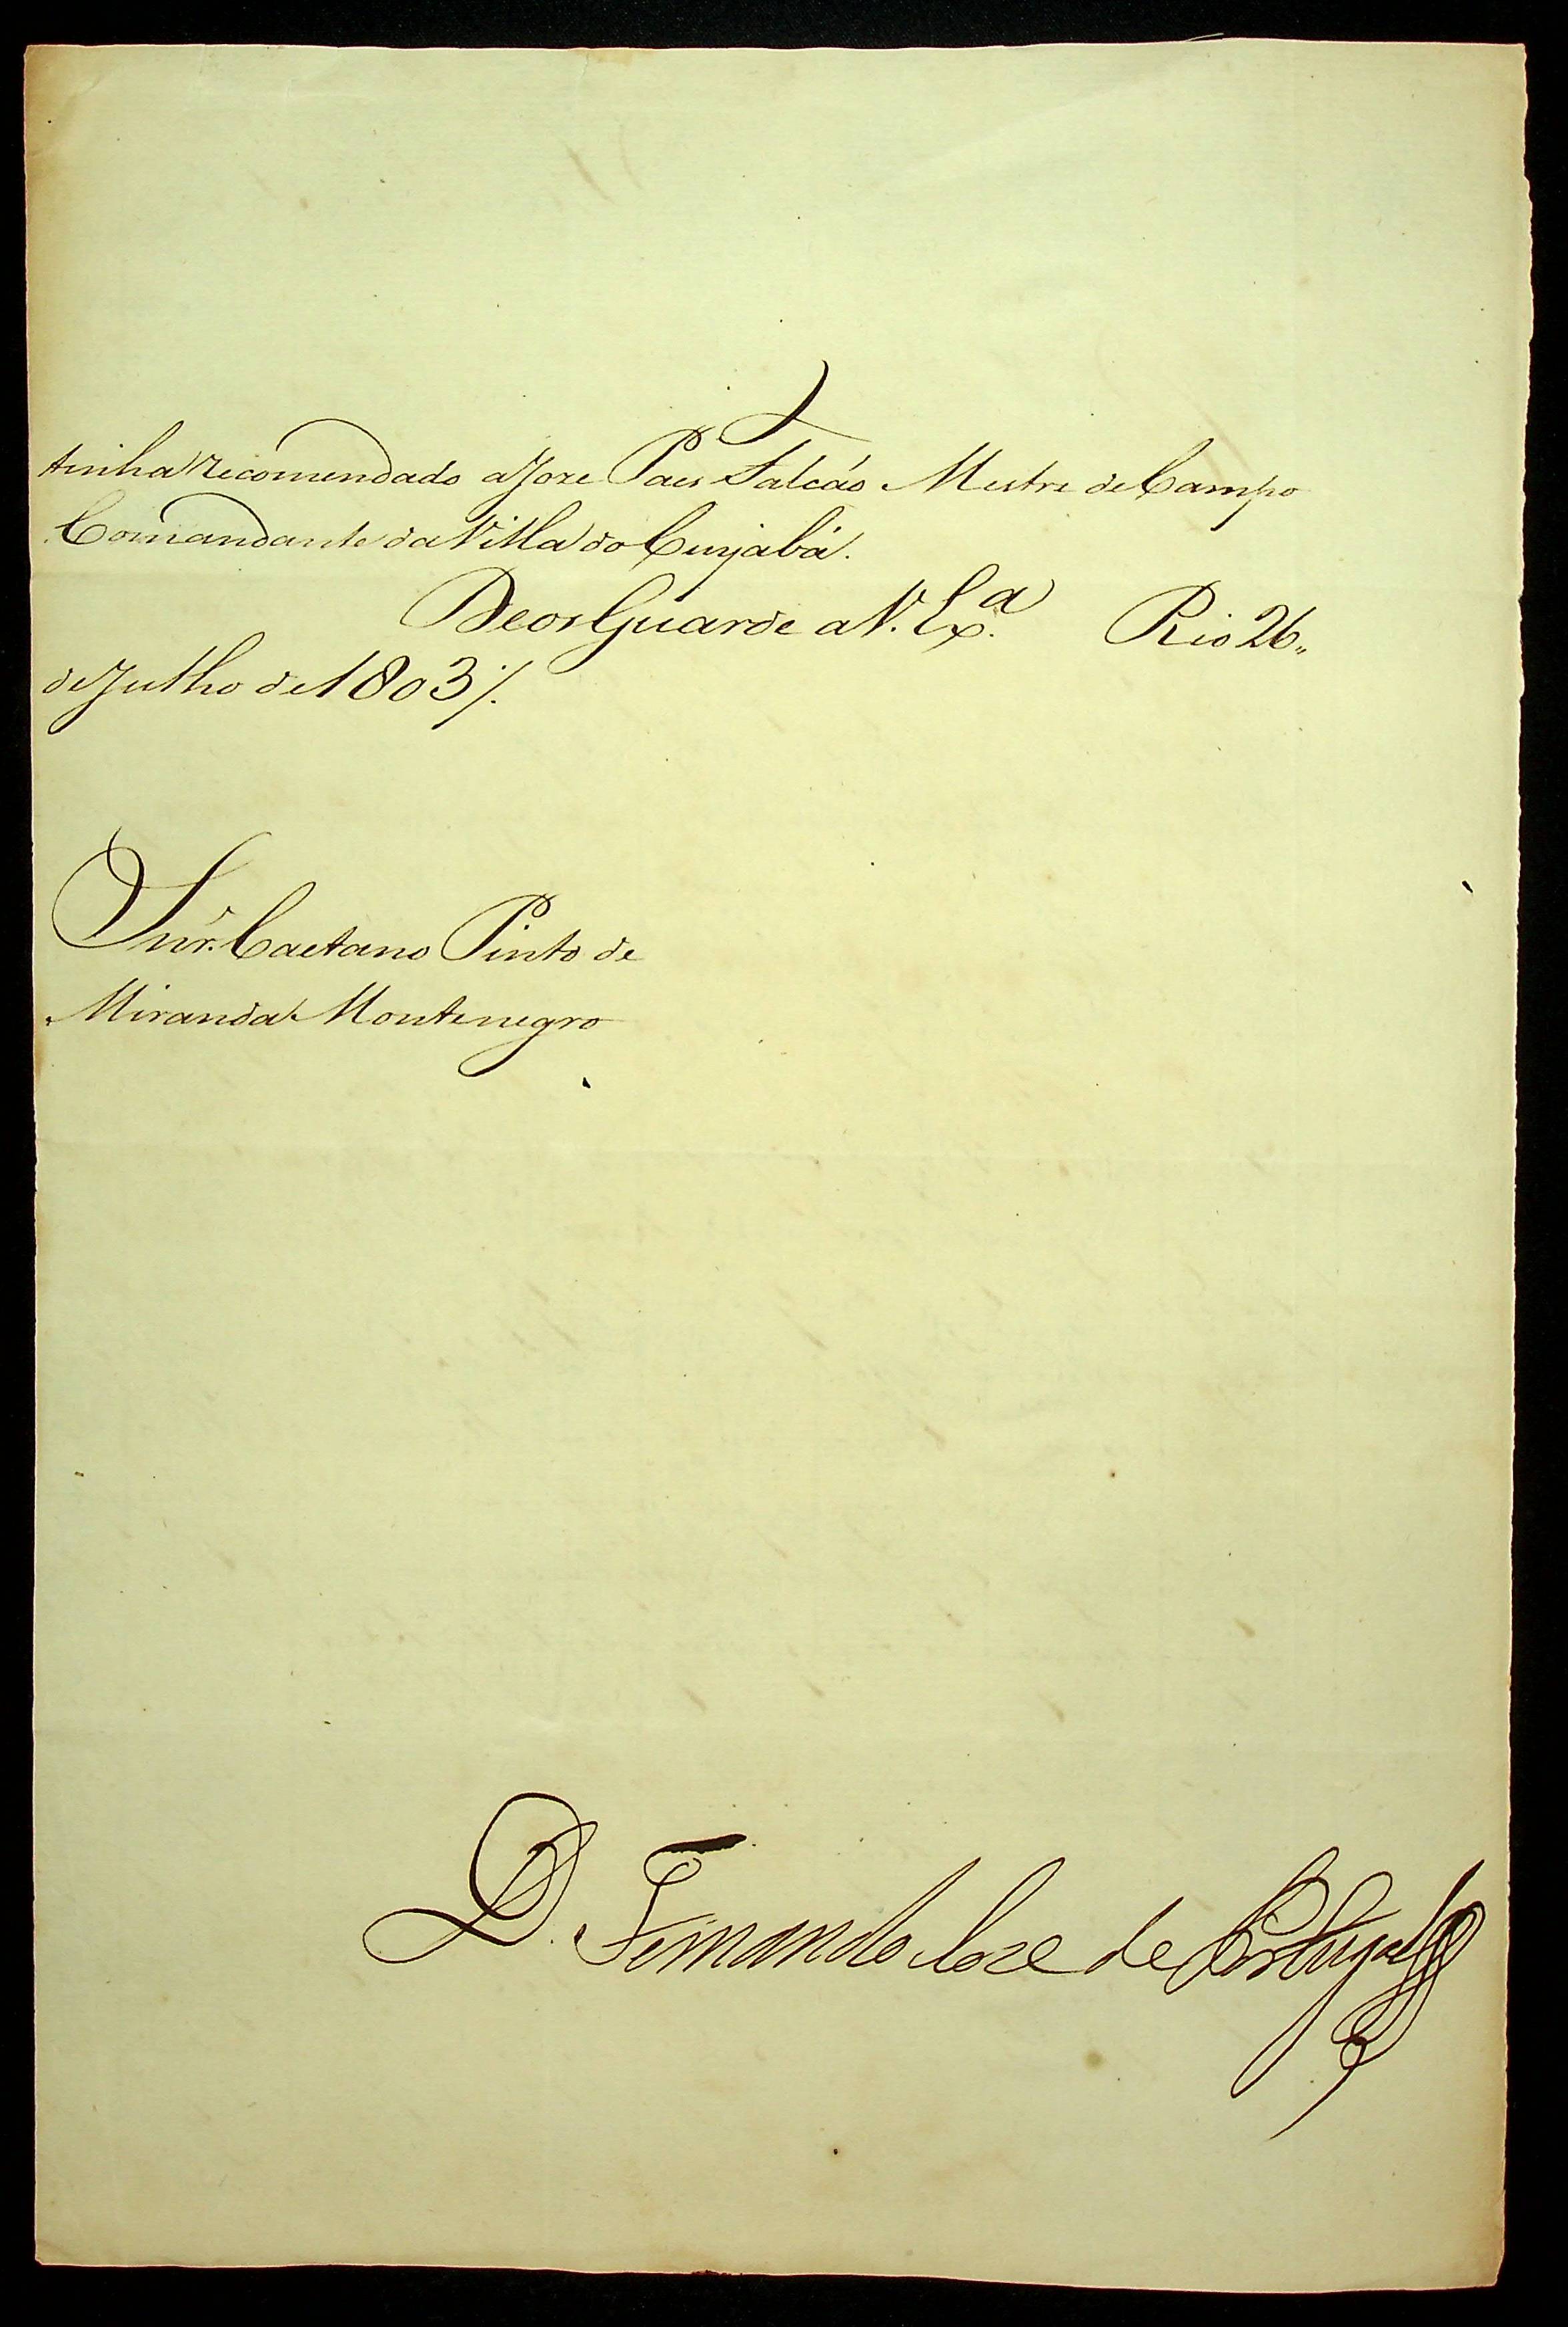 tinha recomendado a Joze Paes Falcaõ Mestre de Campo
Comandante da Villa do Cuyabá.
Deos Guarde a V. Ex.ª Rio 26,,
de Julho de 1803 /.
Snr. Caetano Pinto de
Miranda Montenegro
D. Fernando Joze de Portugal